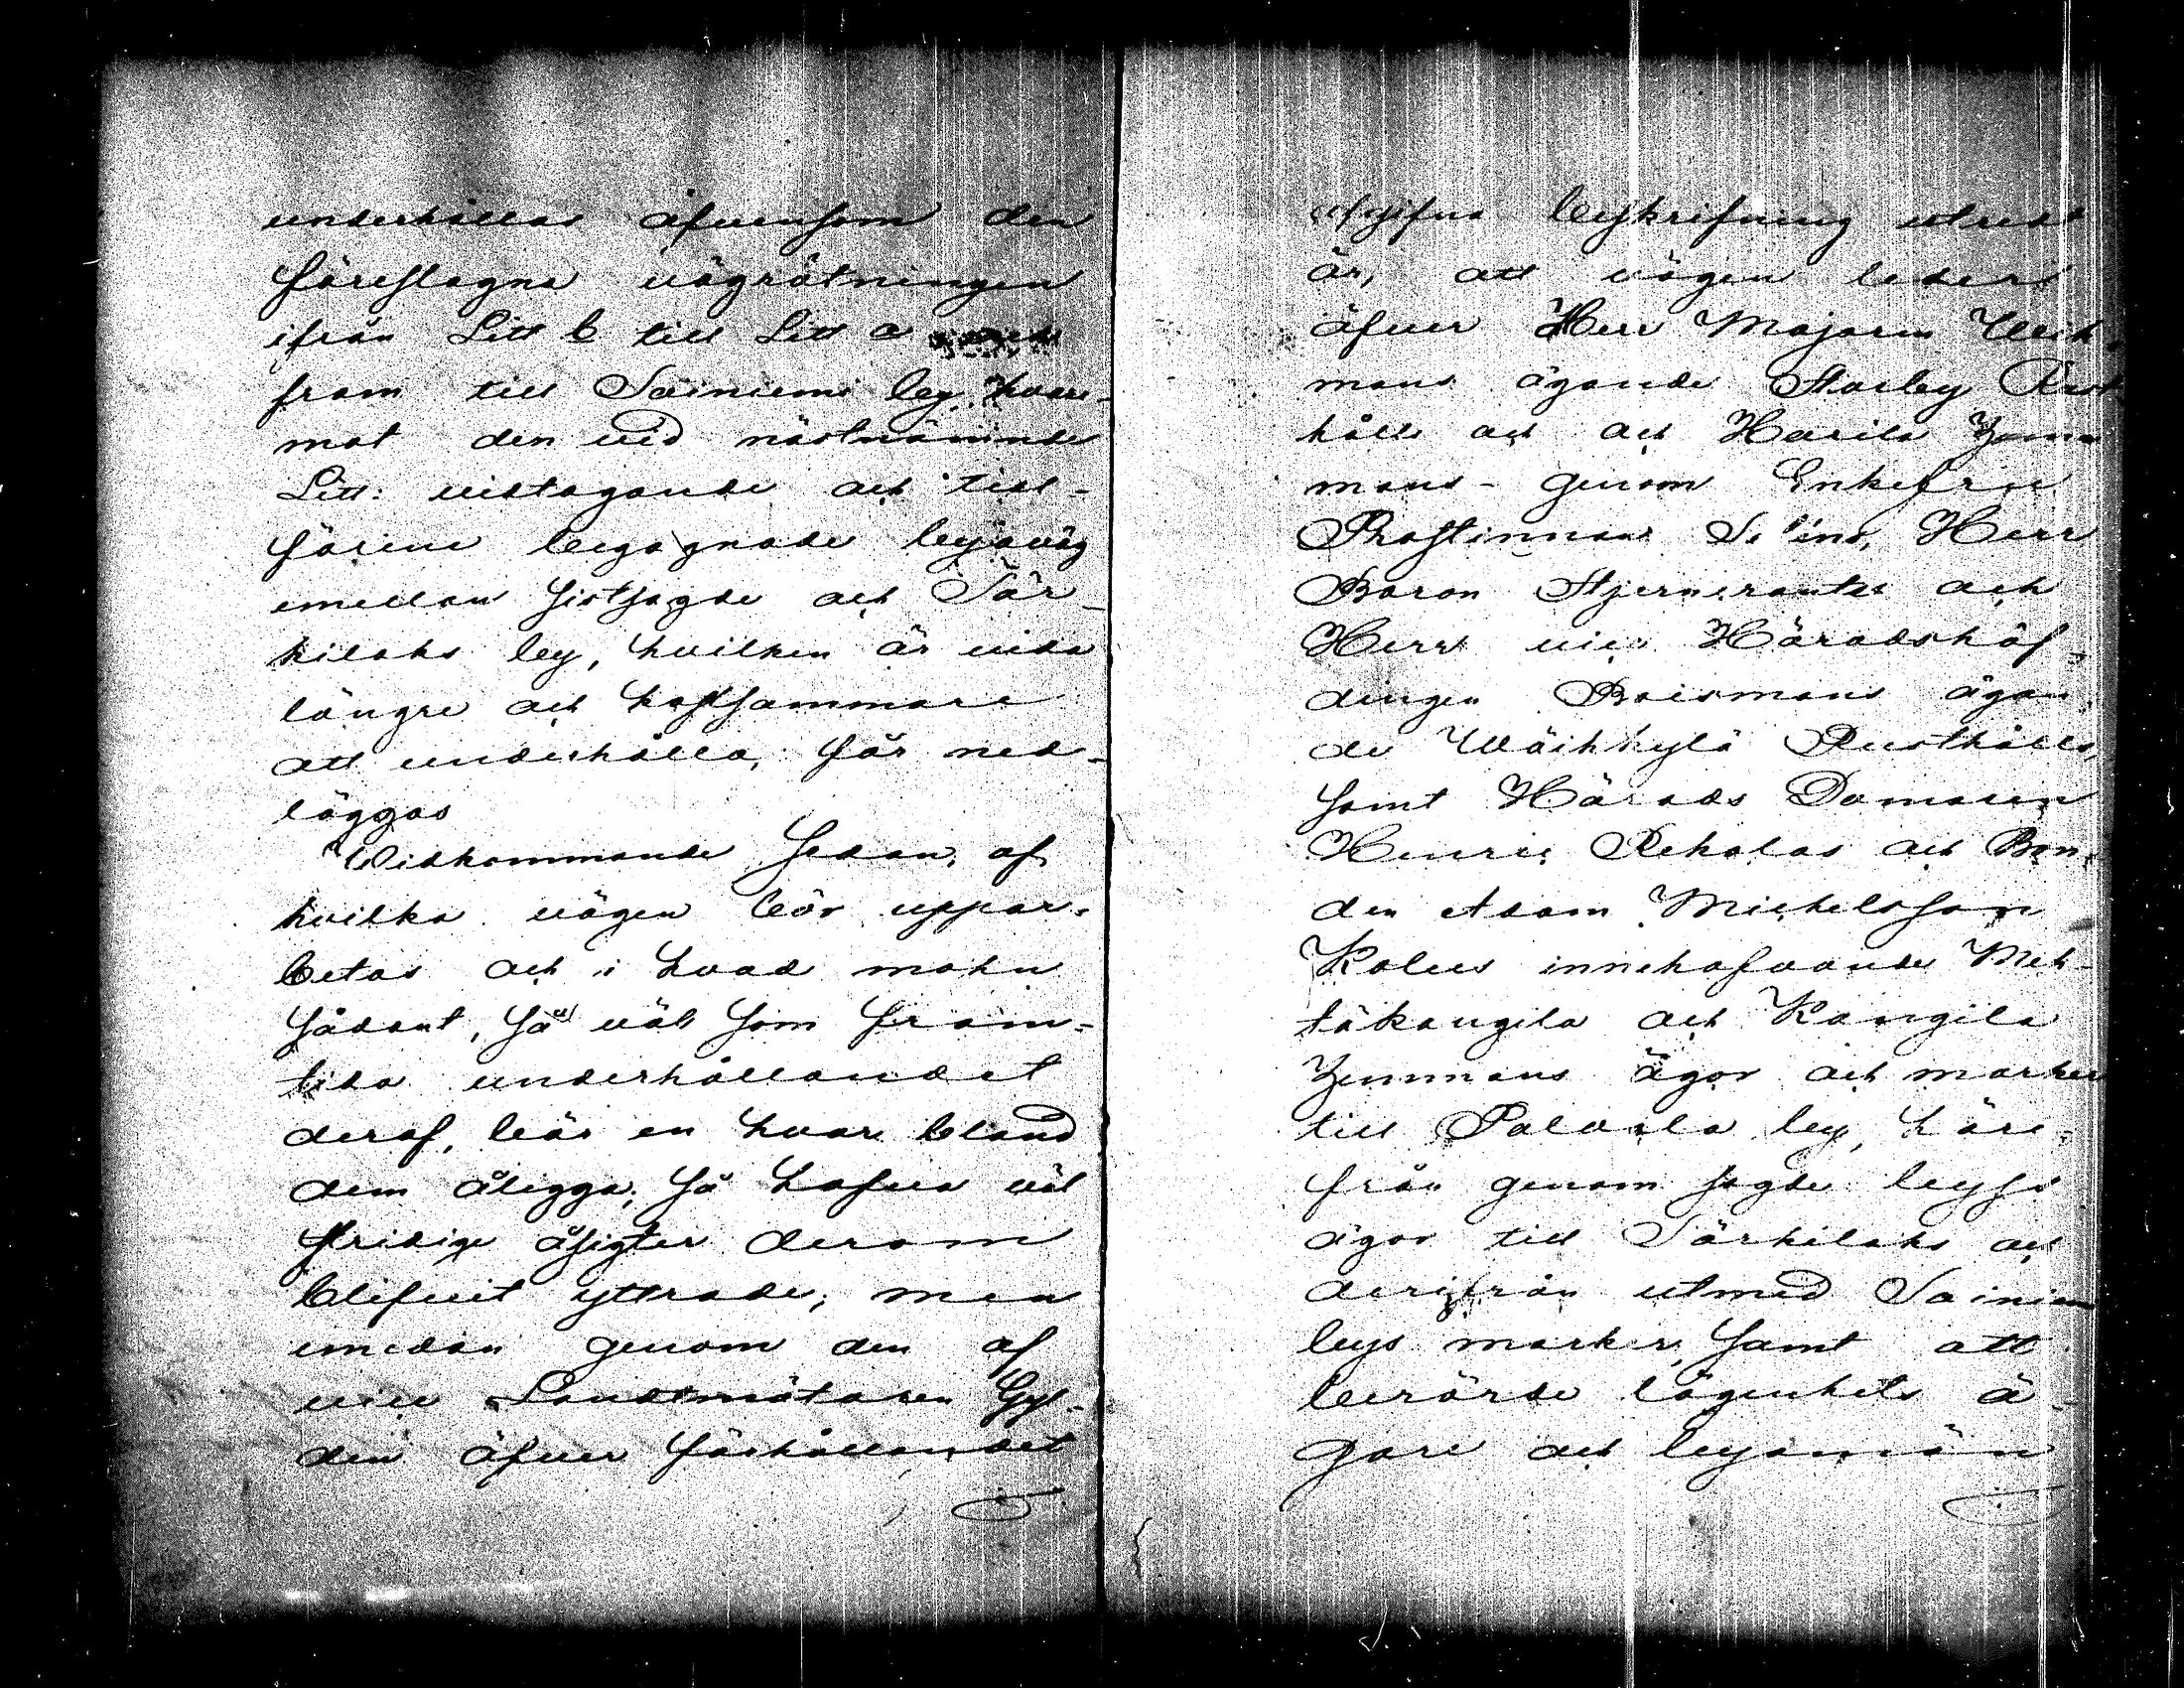 underhållas äfvensom den
föreslagna vägrätningen
ifrån Litt b till Litt a
fram till Sainiemi by, hvare-
mot den vid nästnämnde
Litt: vidtagande och till-
förene begagnade byaväg
emellan sistsagde och Sär-
kilaks by, hvilken är vida
längre och kostsammare
att underhålla, får ned-
läggas
Widkommande sedan, af
hvilka vägen bör uppar-
betas och i hvad mohn
sådant, så väl som fram-
tida underhållandet
deraf, bör en hvar bland
dem åligga, så hafva väl
stridige åsigter derom
blifvit yttrade; men
emedan genom den af
vice Landtmätaren Gyl-
dén öfver förhållandet
afgifna beskrifning utredt
är, att vägen leder
öfver Herr Majoren
mans ägande Storby Rust
hålls och och Harila Hem
mans - genom Enkefru
Prostinnans Herr
Baron Stjerncrantz och
Herr vice Häradshöf-
dingen Boismans ägan
de Wäihkylä Rusthålls,
samt Härads Domaren
Henric Rekolas och Bon-
den Adam Michelsson
Kolus innehafvande Meh-
täkangila och Kangila
Hemmans ägor och marker
till Palvala by, häri-
från genom sagde bys
ägor till Särkilaks och
derifrån utmed Sainiem
bys marker, samt att
berörde lägenhets ä-
gare och byamän